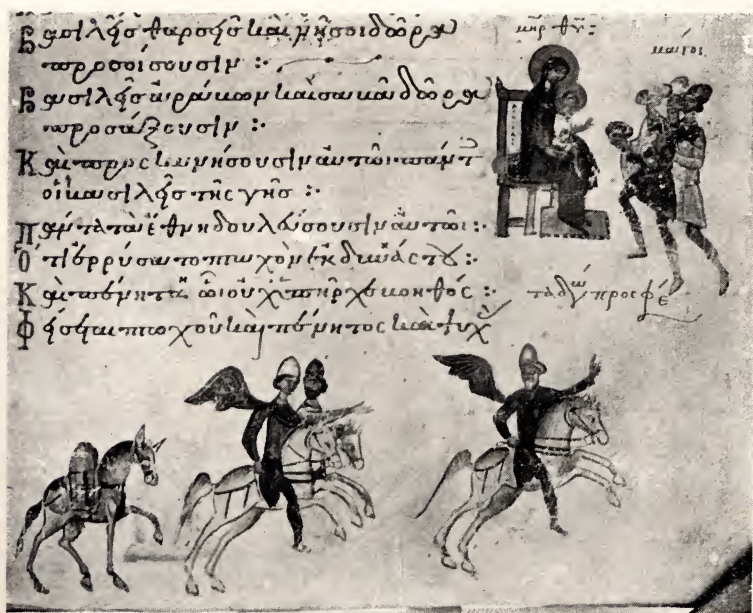 Βασιλεῖς θαρσεῖς καὶ νῆσοι δῶρα
προσοίσουσιν :·
Βασιλεῖς ἀράβων καὶ σαβὰ δῶρα
προσάξουσιν :·
Καὶ προσκυνήσουσιν αὐτῶι πάντ
οἱ βασιλεῖς τῆς γῆς :·
Πάντα τὰ ἔθνη δουλεύσουσιν αὐτῶι :·
Ὅτι ἐρρύσατο πτωχὸν ἐκ δυνάστου :·
Καὶ πένητα ὧι οὐχ ὑπῆρχε βοηθός :·
Φείσεται πτωχοῦ καὶ πένητος καὶ ψυχ
μηρ θυ :
μάγοι
τὰ δῶ προσφέ